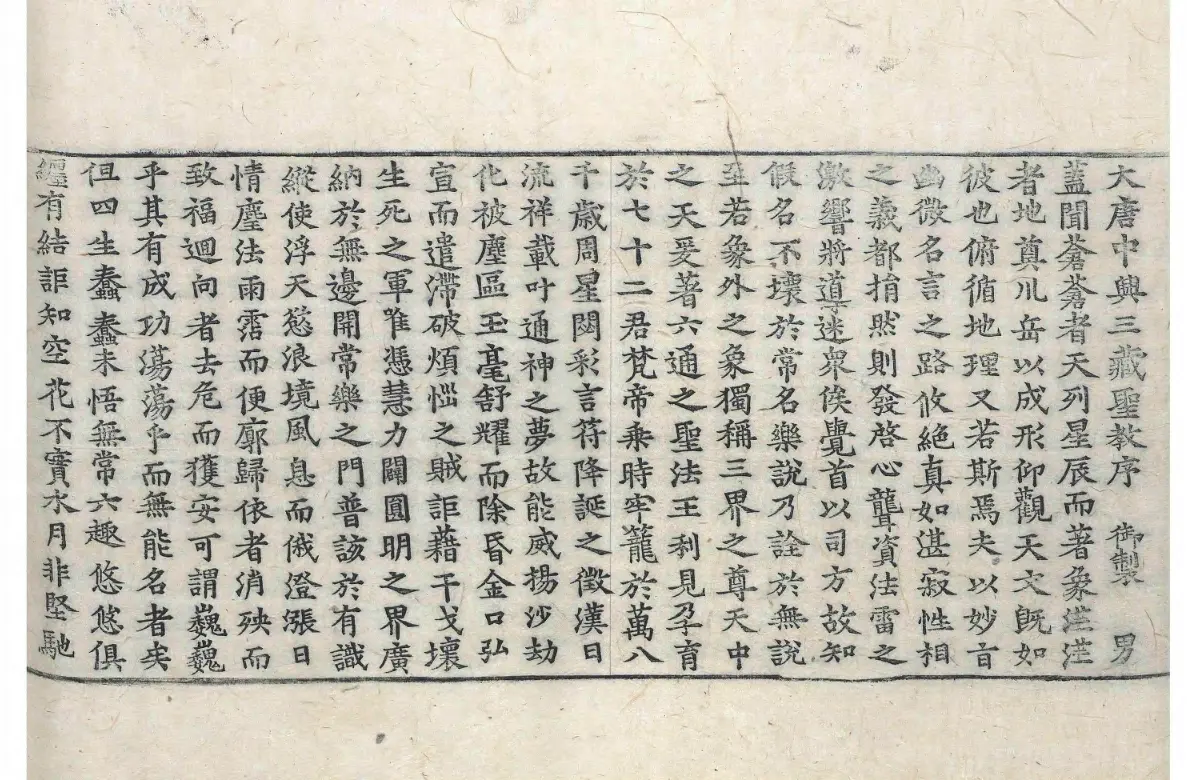 大唐中興三藏聖教序 御製 男
蓋聞蒼蒼者天列星辰而著象茫茫
者地奠川岳以成形仰觀天文既如
彼也俯循地理又若斯焉夫以妙旨
幽微名言之路攸絶真如湛寂性相
之義都捐然則發啓心聾資法雷之
激響將導迷衆俟覺首以司方故知
假名不壞於常名樂說乃詮於無說
至若象外之象獨稱三界之尊天中
之天爰著六通之聖法王利見孕育
於七十二君梵帝乘時牢籠於萬八
千歲周星閟彩言符降誕之徵漢日
流祥載叶通神之夢故能威揚沙劫
化被塵區玉毫舒耀而除昏金口弘
宣而遣滯破煩惱之賊詎藉干戈壞
生死之軍唯憑慧力闢圓明之界廣
納於無邊開常樂之門普該於有識
縱使浮天慾浪境風息而俄澄漲日
情塵法雨霑而便廓歸依者消殃而
致福迴向者去危而獲安可謂巍巍
乎其有成功蕩蕩乎而無能名者矣
但四生蠢蠢未悟無常六趣悠悠俱
纏有結詎知空花不實水月非堅馳